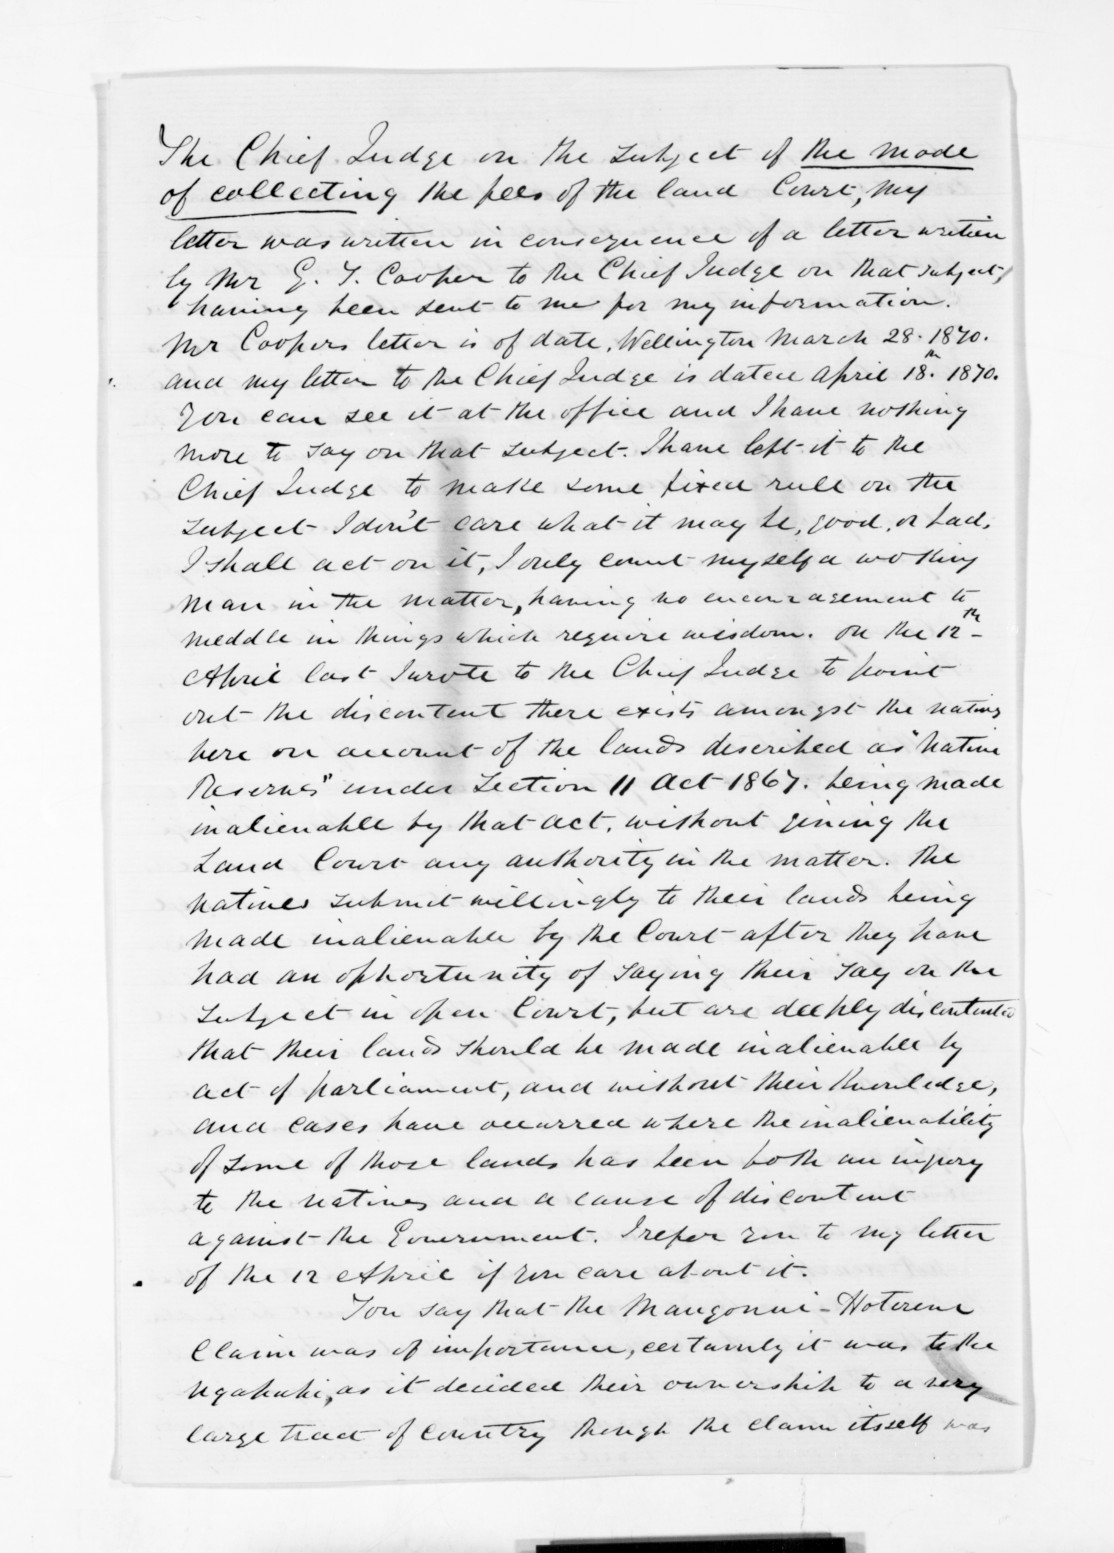 The Chief Judge on the subject of the mode
of collecting the fees of the land Court, my
letter was written in consequence of a letter written
by Mr G. S. Cooper to the Chief Judge on that subject,
having been sent to me for my information.
Mr Coopers letter is of date, Wellington March 28. 1870.
and my letter to the Chief Judge is dated April 18th. 1870.
You can see it at the office and I have nothing
more to say on that subject. I have left it to the
Chief Judge to make some fixed rule on the
subject I don't care what it may be, good, or bad,
I shall act on it, I only count myself a working
man in the matter, having no encouragement to
meddle in things which require wisdom. on the 12th
April last I wrote to the Chief Judge to point
out the discontent there exists amongst the natives
here on account of the lands described as "Native
Reserves" under Section 11 Act 1867. being made
inalienable by that act, without giving the
Land Court any authority in the matter. The
natives submit willingly to their lands being
made inalienable by the Court after they have
had an opportunity of saying their say on the
subject in open Court, but are deeply discontented
that their lands should be made inalienable by
act of parliament, and without their knowledge,
and cases have occurred where the inalienability
of some of those lands has been both an injury
to the natives and a cause of discontent
against the Government. I refer you to my letter
of the 12 April if you care about it.
You say that the Maugonui - Hoterene
Claim was of importance, certainly it was to the
Ngapuhi, as it decided their ownership to a very
large tract of country though the claim itself was